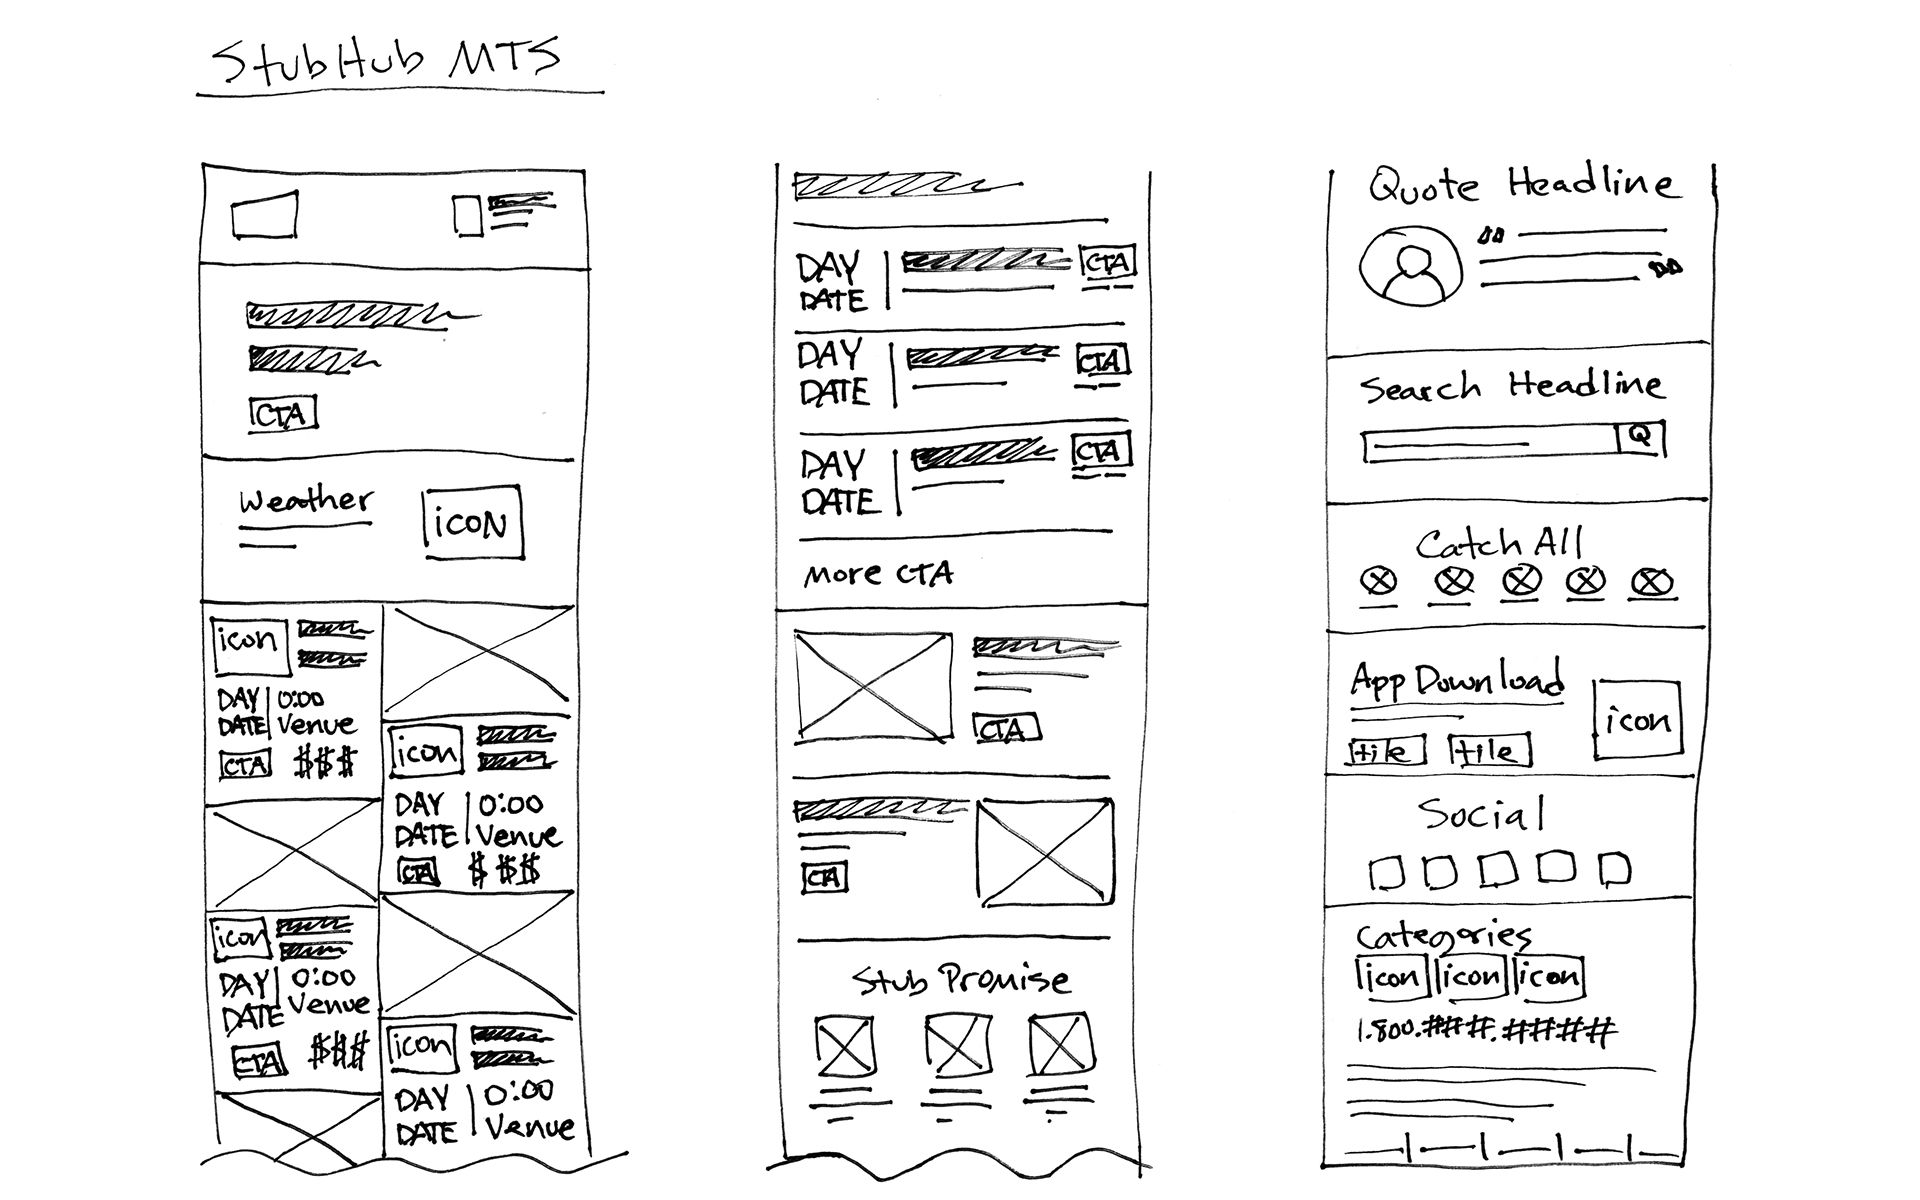 StubHub MTS
CTA
Weather
icon
icon
DAY 0:00
DATE Venue
CTA $$$
icon
DAY 0:00
DATE Venue
CTA $ $$
icon
DAY 0:00
DATE Venue
CTA $##
icon
DAY 0:00
DATE Venue
DAY
DATE
CTA
DAY
DATE
CTA
DAY
DATE
CTA
More CTA
CTA
CTA
Stub Promise
Quote Headline
Search Headline
Q
Catch All
App Download
tile tile
icon
Social
Categories
icon icon icon
1.800.###.####